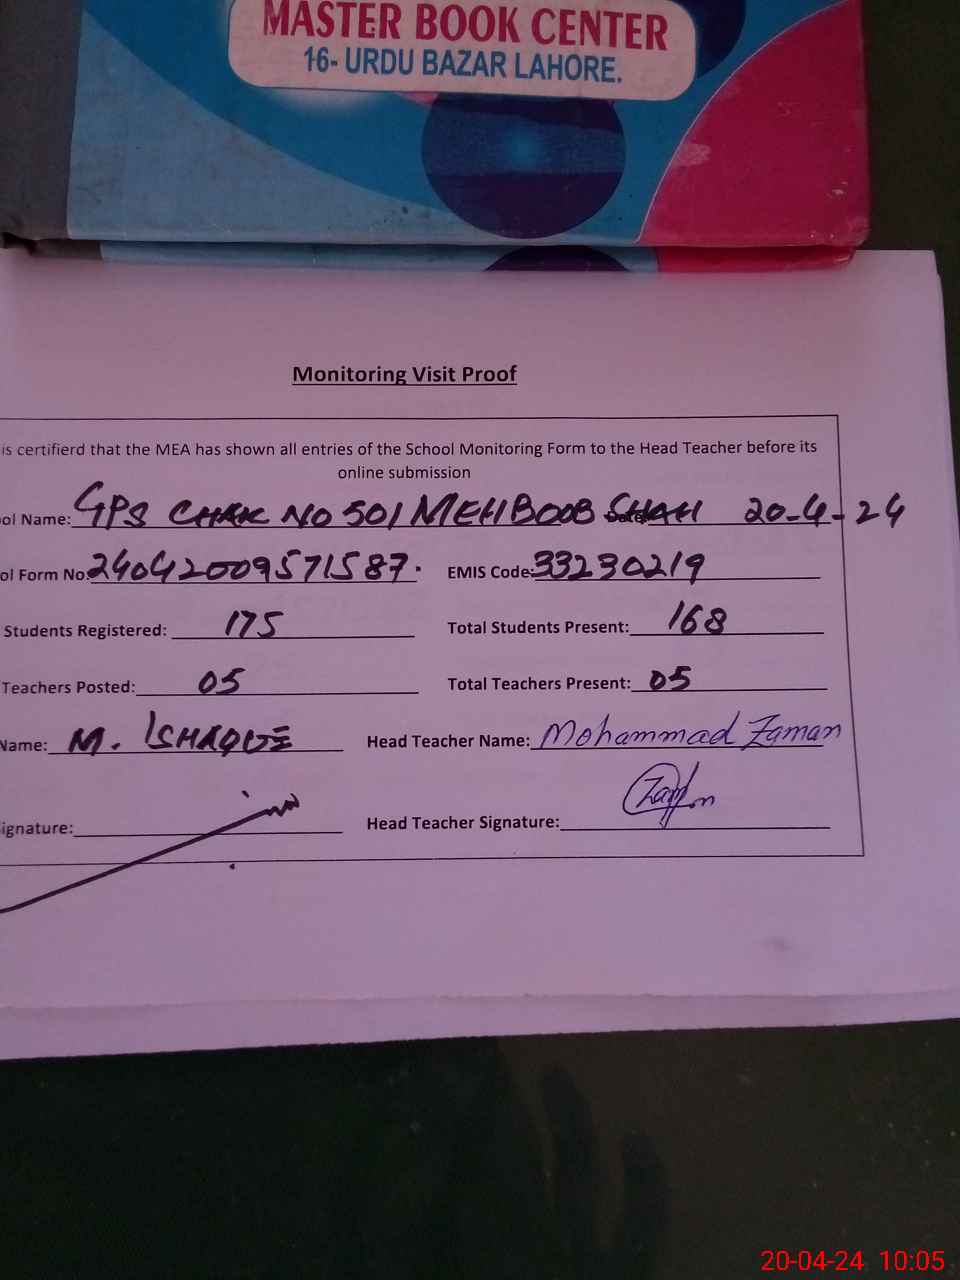 MASTER BOOK CENTER
16- URDU BAZAR LAHORE.
Monitoring Visit Proof
is certifierd that the MEA has shown all entries of the School Monitoring Form to the Head Teacher before its
online submission
ol Name: GPS CHAK NO 501 MEHBOOB SHAH Date: 20-4-24
ol Form No. 24042009571587. EMIS Code: 33230219
Students Registered: 175 Total Students Present: 168
Teachers Posted: 05 Total Teachers Present: 05
Name: M. ISHAQUE Head Teacher Name: Mohammad Zaman
ignature: Head Teacher Signature:
20-04-24 10:05